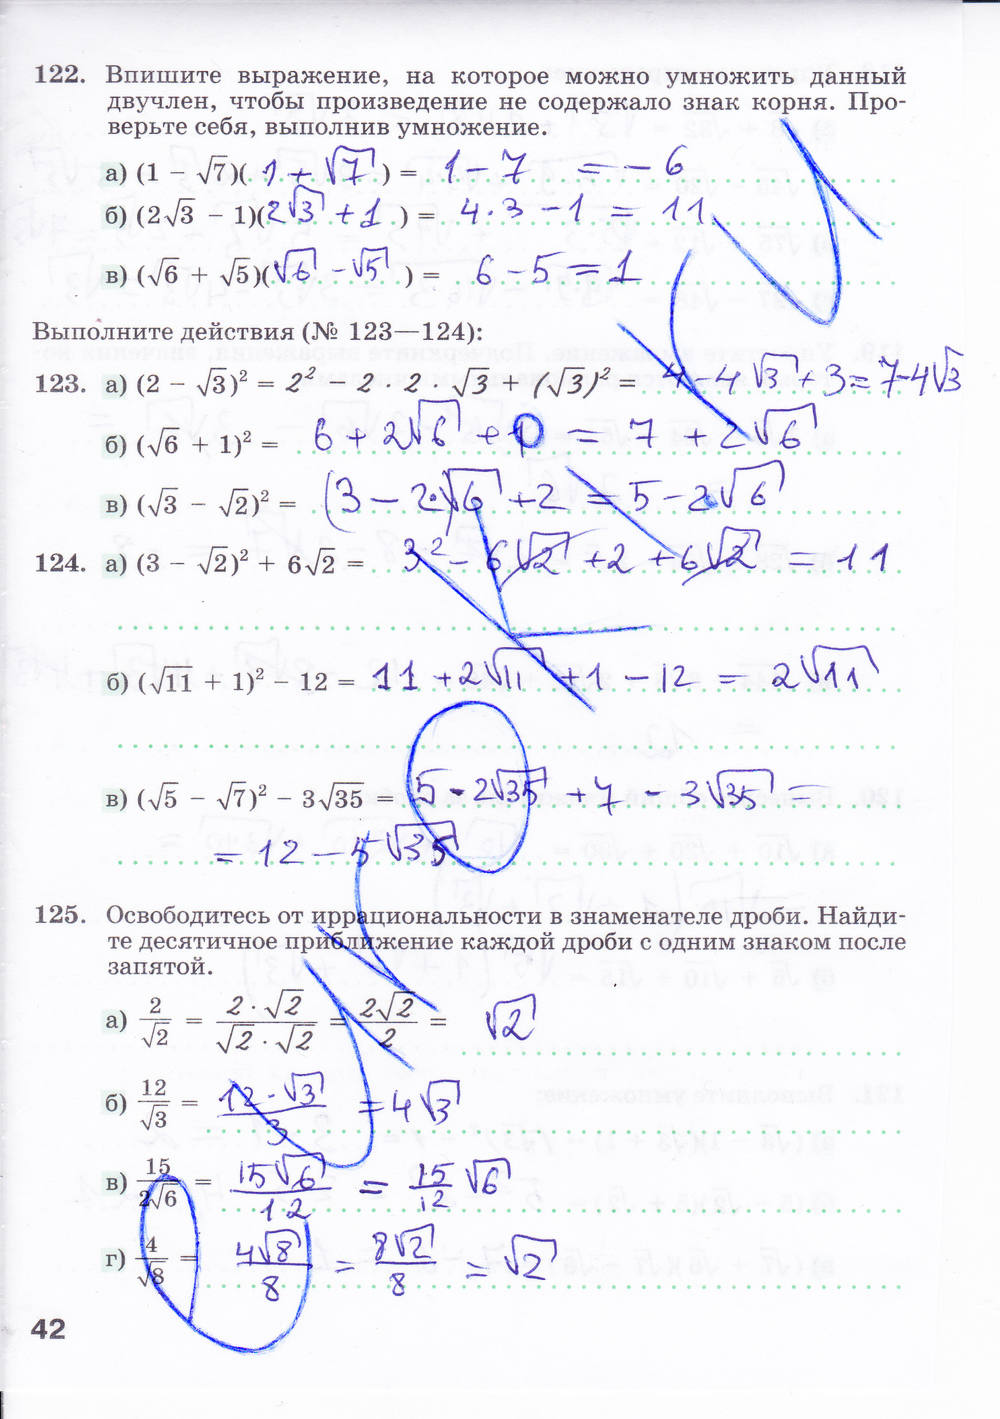 122. Впишите выражение, на которое можно умножить данный
двучлен, чтобы произведение не содержало знак корня. Про-
верьте себя, выполнив умножение.
а) (1 − √7)(1 + √7) = 1 − 7 = − 6
б) (2√3 − 1)(2√3 + 1) = 4 · 3 − 1 = 11
в) (√6 + √5)(√6 − √5) = 6 − 5 = 1
Выполните действия (№ 123—124):
123. а) (2 − √3)² = 2² − 2 · 2 · √3 + (√3)² = 4 − 4√3 + 3 = 7 − 4√3
б) (√6 + 1)² = 6 + 2√6 + 1 = 7 + 2√6
в) (√3 − √2)² = (3 − 2·)√6 + 2 = 5 − 2√6
124. а) (3 − √2)² + 6√2 = 3² − 6√2 + 2 + 6√2 = 11
б) (√11 + 1)² − 12 = 11 + 2√11 + 1 − 12 = 2√11
в) (√5 − √7)² − 3√35 = 5 − 2√35 + 7 − 3√35 =
= 12 − 5√35
125. Освободитесь от иррациональности в знаменателе дроби. Найди-
те десятичное приближение каждой дроби с одним знаком после
запятой.
а) 2/√2 = 2 · √2/√2 · √2 = 2√2/2 = √2
б) 12/√3 = 12 · √3/3 = 4√3
в) 15/2√6 = 15√6/12 = 15/12 √6
г) 4/√8 = 4√8/8 = 8√2/8 = √2
42